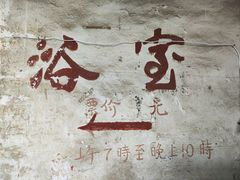 浴室
票价 元
上午7時至晚上10時